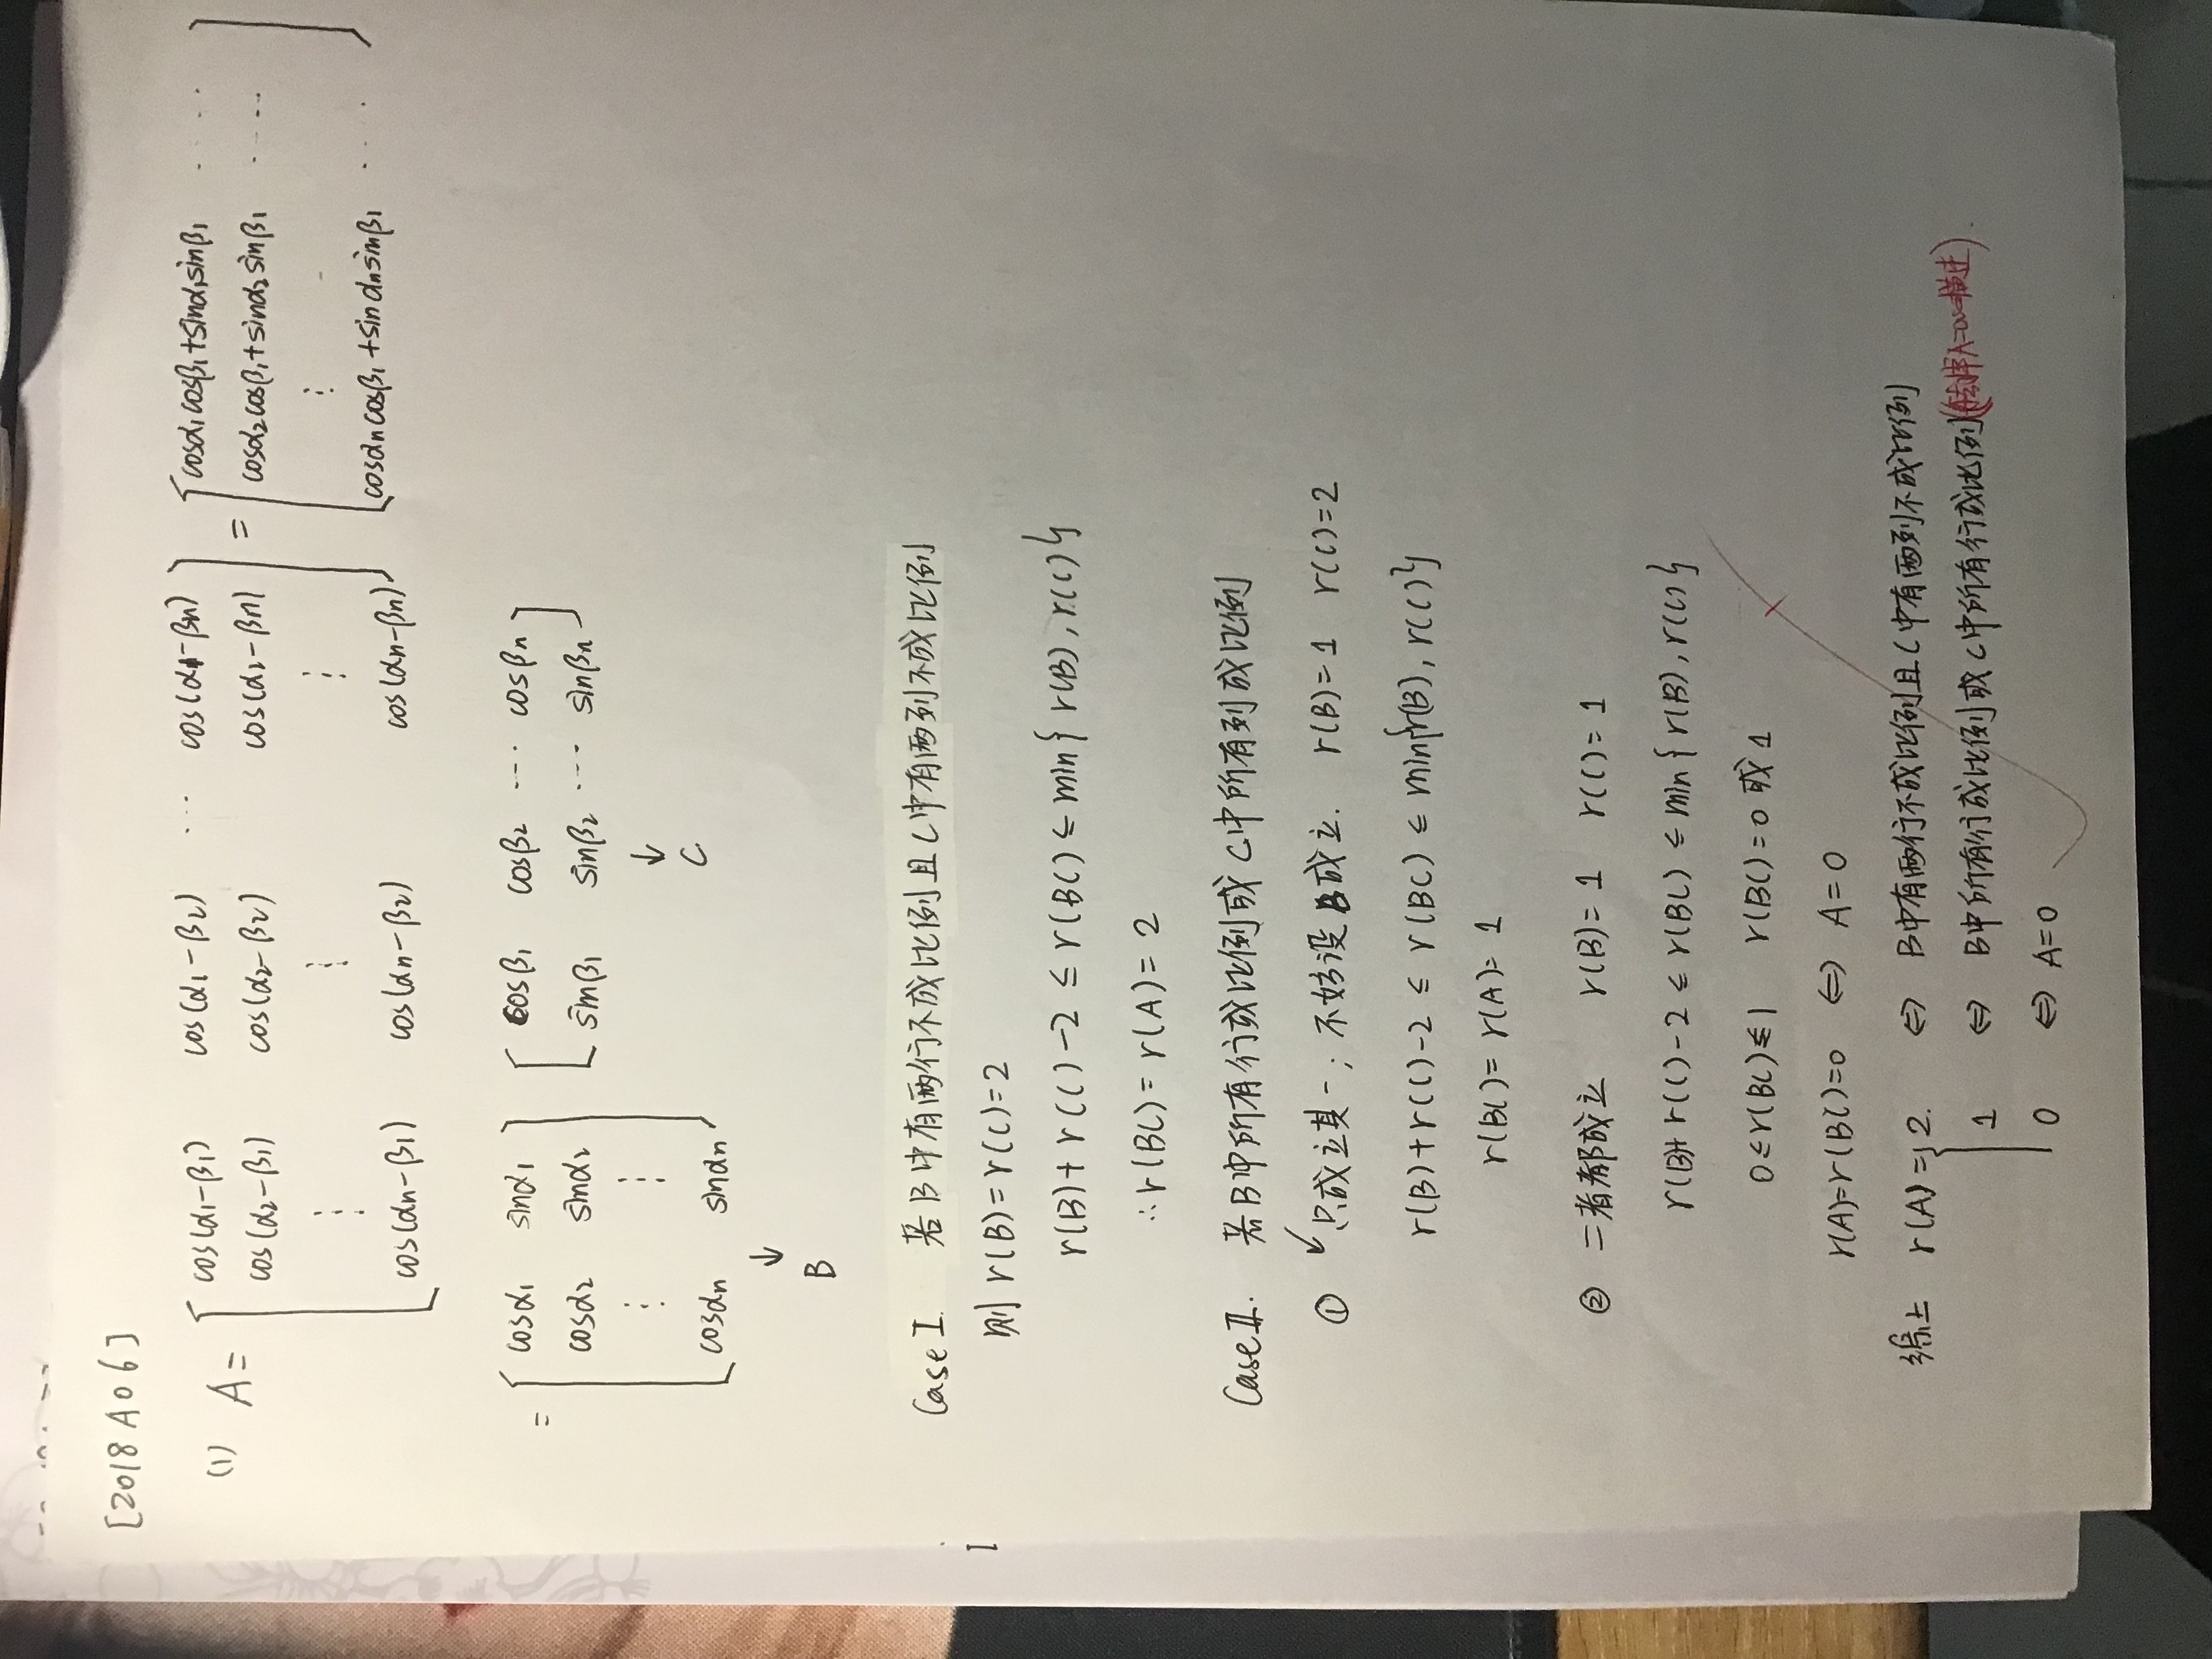 [2018A06]
(1) A = [ cos(α1-β1) cos(α1-β2) ⋯ cos(α1-βn) ] = [ cosα1cosβ1+sinα1sinβ1 ⋯⋯ ]
cos(α2-β1) cos(α2-β2) cos(α2-βn) cosα2cosβ1+sinα2sinβ1 ⋯⋯
⋮ ⋮ ⋮ ⋮
cos(αn-β1) cos(αn-β2) cos(αn-βn) cosαncosβ1+sinαnsinβ1 ⋯⋯
= [ cosα1 sinα1 ] [ cosβ1 cosβ2 ⋯ cosβn ]
cosα2 sinα2 sinβ1 sinβ2 ⋯ sinβn
⋮ ⋮ ↓
cosαn sinαn C
↓
B
Case I. 若B中有两行不成比例且C中有两列不成比例
则 r(B)=r(C)=2
r(B)+r(C)-2 ≤ r(BC) ≤ min{r(B),r(C)}
∴ r(BC)=r(A)=2
Case II. 若B中所有行成比例或C中所有列成比例
① 只成立其一;不妨设B成立. r(B)=1 r(C)=2
r(B)+r(C)-2 ≤ r(BC) ≤ min{r(B),r(C)}
r(BC)=r(A)=1
② 二者都成立 r(B)=1 r(C)=1
r(B)+r(C)-2 ≤ r(BC) ≤ min{r(B),r(C)}
0≤r(BC)≤1 r(BC)=0或1
r(A)=r(BC)=0 ⇔ A=0
综上 r(A)={ 2. ⇔ B中有两行不成比例且C中有两列不成比例
1 ⇔ B中所有行成比例或C中所有行成比例
0 ⇔ A=0